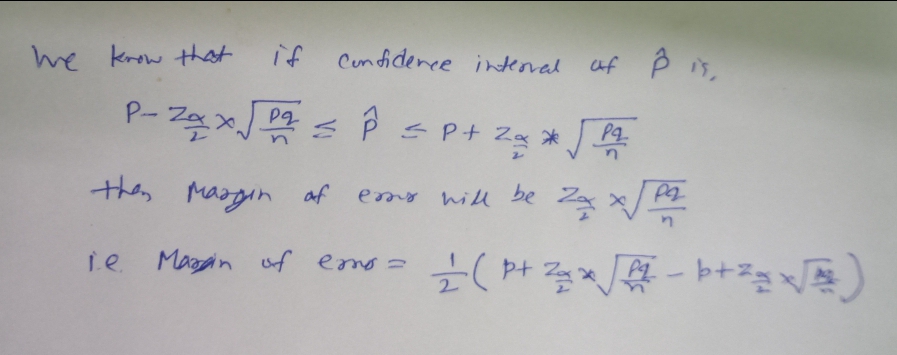 We know that if confidence interval of p̂ is,
P - Zα/2 × √(pq/n) ≤ p̂ ≤ P + Zα/2 * √(pq/n)
then Margin of error will be Zα/2 × √(pq/n)
i.e. Margin of error = 1/2 (p + Zα/2 × √(pq/n) - p + Zα/2 × √(pq/n))